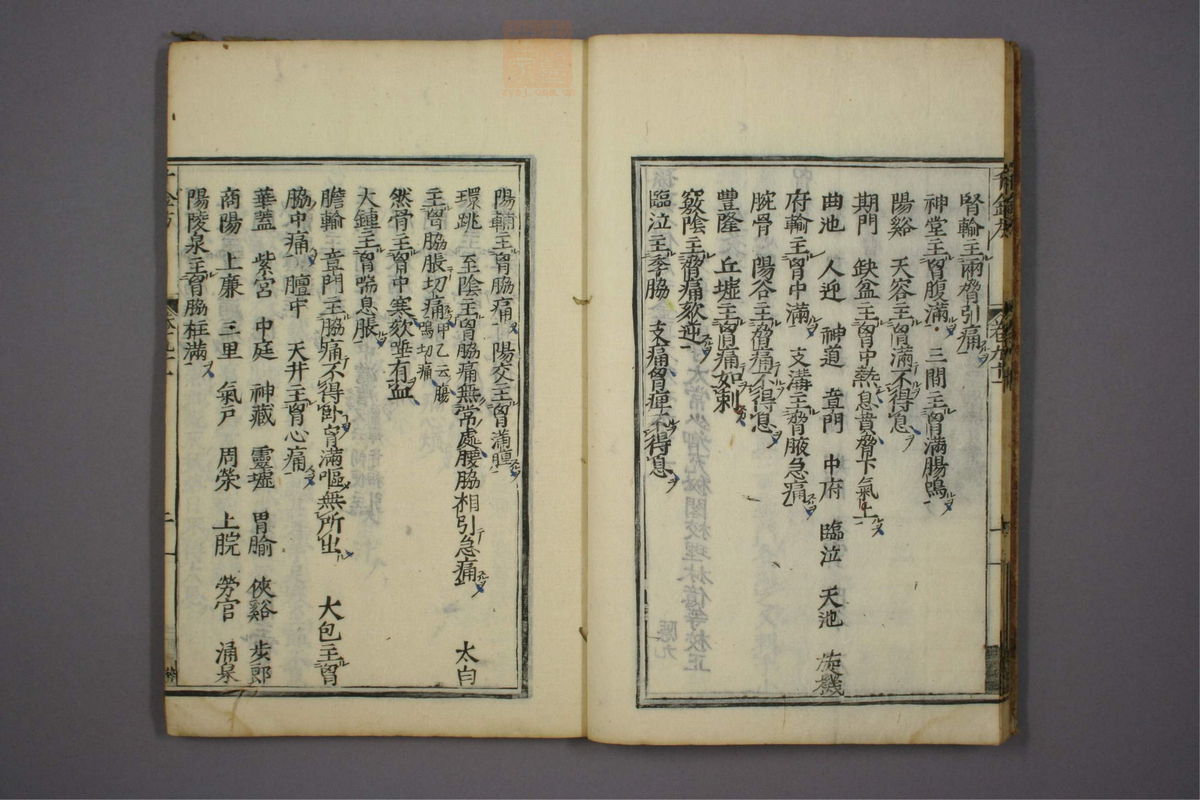 腎輸主兩脅引痛
神堂主胷腹滿三間主胷滿腸鳴
陽谿 天容主胷滿不得息
期門 缺盆主胷中熱息賁脅下氣上
曲池 人迎 神道 章門 中府 臨泣 天池 璇機
府輸主胷中滿 支溝主脅腋急痛
腕骨 陽谷主脅痛不得息
豐隆 丘墟主胷痛如刺
竅陰主脅痛欬逆
臨泣主季脇 支痛胷痺不得息
陽輔主胷脇痛 陽交主胷滿腫
環跳 至陰主胷脇痛無常處腰脇相引急痛 太白
主胷脇脹切痛甲乙云腸鳴切痛
然骨主胷中寒欬唾有血
大鍾主胷喘息脹
膽輸 章門主脇痛不得卧胷滿嘔無所出 大包主胷
脇中痛 膻中 天井主胷心痛
華蓋 紫宮 中庭 神藏 靈墟 胃腧 俠谿 步郎
商陽 上廉 三里 氣戶 周榮 上脘 勞宮 涌泉
陽陵泉主胷脇柱滿